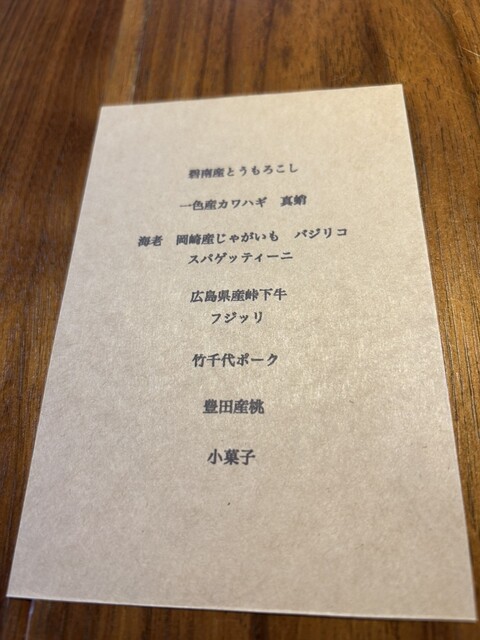 碧南産とうもろこし
一色産カワハギ　真蛸
海老　岡崎産じゃがいも　バジリコ
スパゲッティーニ
広島県産峠下牛
フジッリ
竹千代ポーク
豊田産桃
小菓子